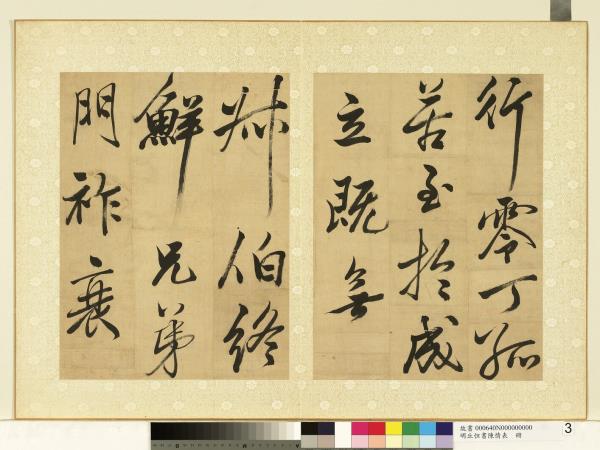 行零丁孤
苦至於成
立既無
叔伯終
鮮兄弟
門祚衰
故書 000640N000000000
明丘恒書陳情表 冊
3